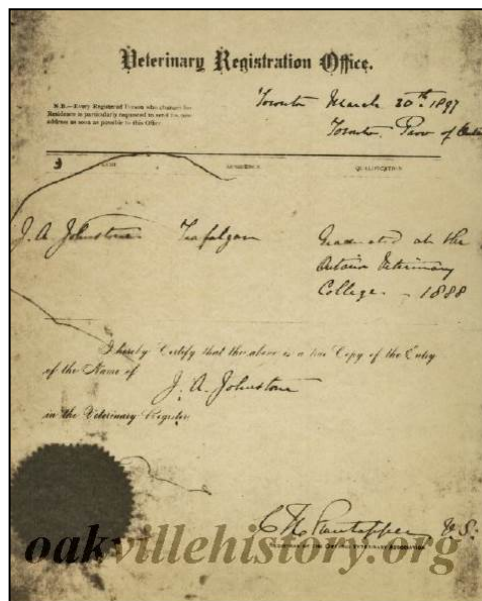 Veterinary Registration Office.
Toronto March 30th 1897
N.B.—Every Registered Person who changes his
Residence is particularly requested to send his new
address as soon as possible to this Office.
Toronto, Prov of
NAME RESIDENCE QUALIFICATION
J. A. Johnstone Trafalgar Graduated at the
Ontario Veterinary
College — 1888
I hereby Certify that the above is a true Copy of the Entry
of the Name of
J. A. Johnstone
in the Veterinary Register
C. H. V.S.
OF THE ONTARIO VETERINARY ASSOCIATION
oakvillehistory.org